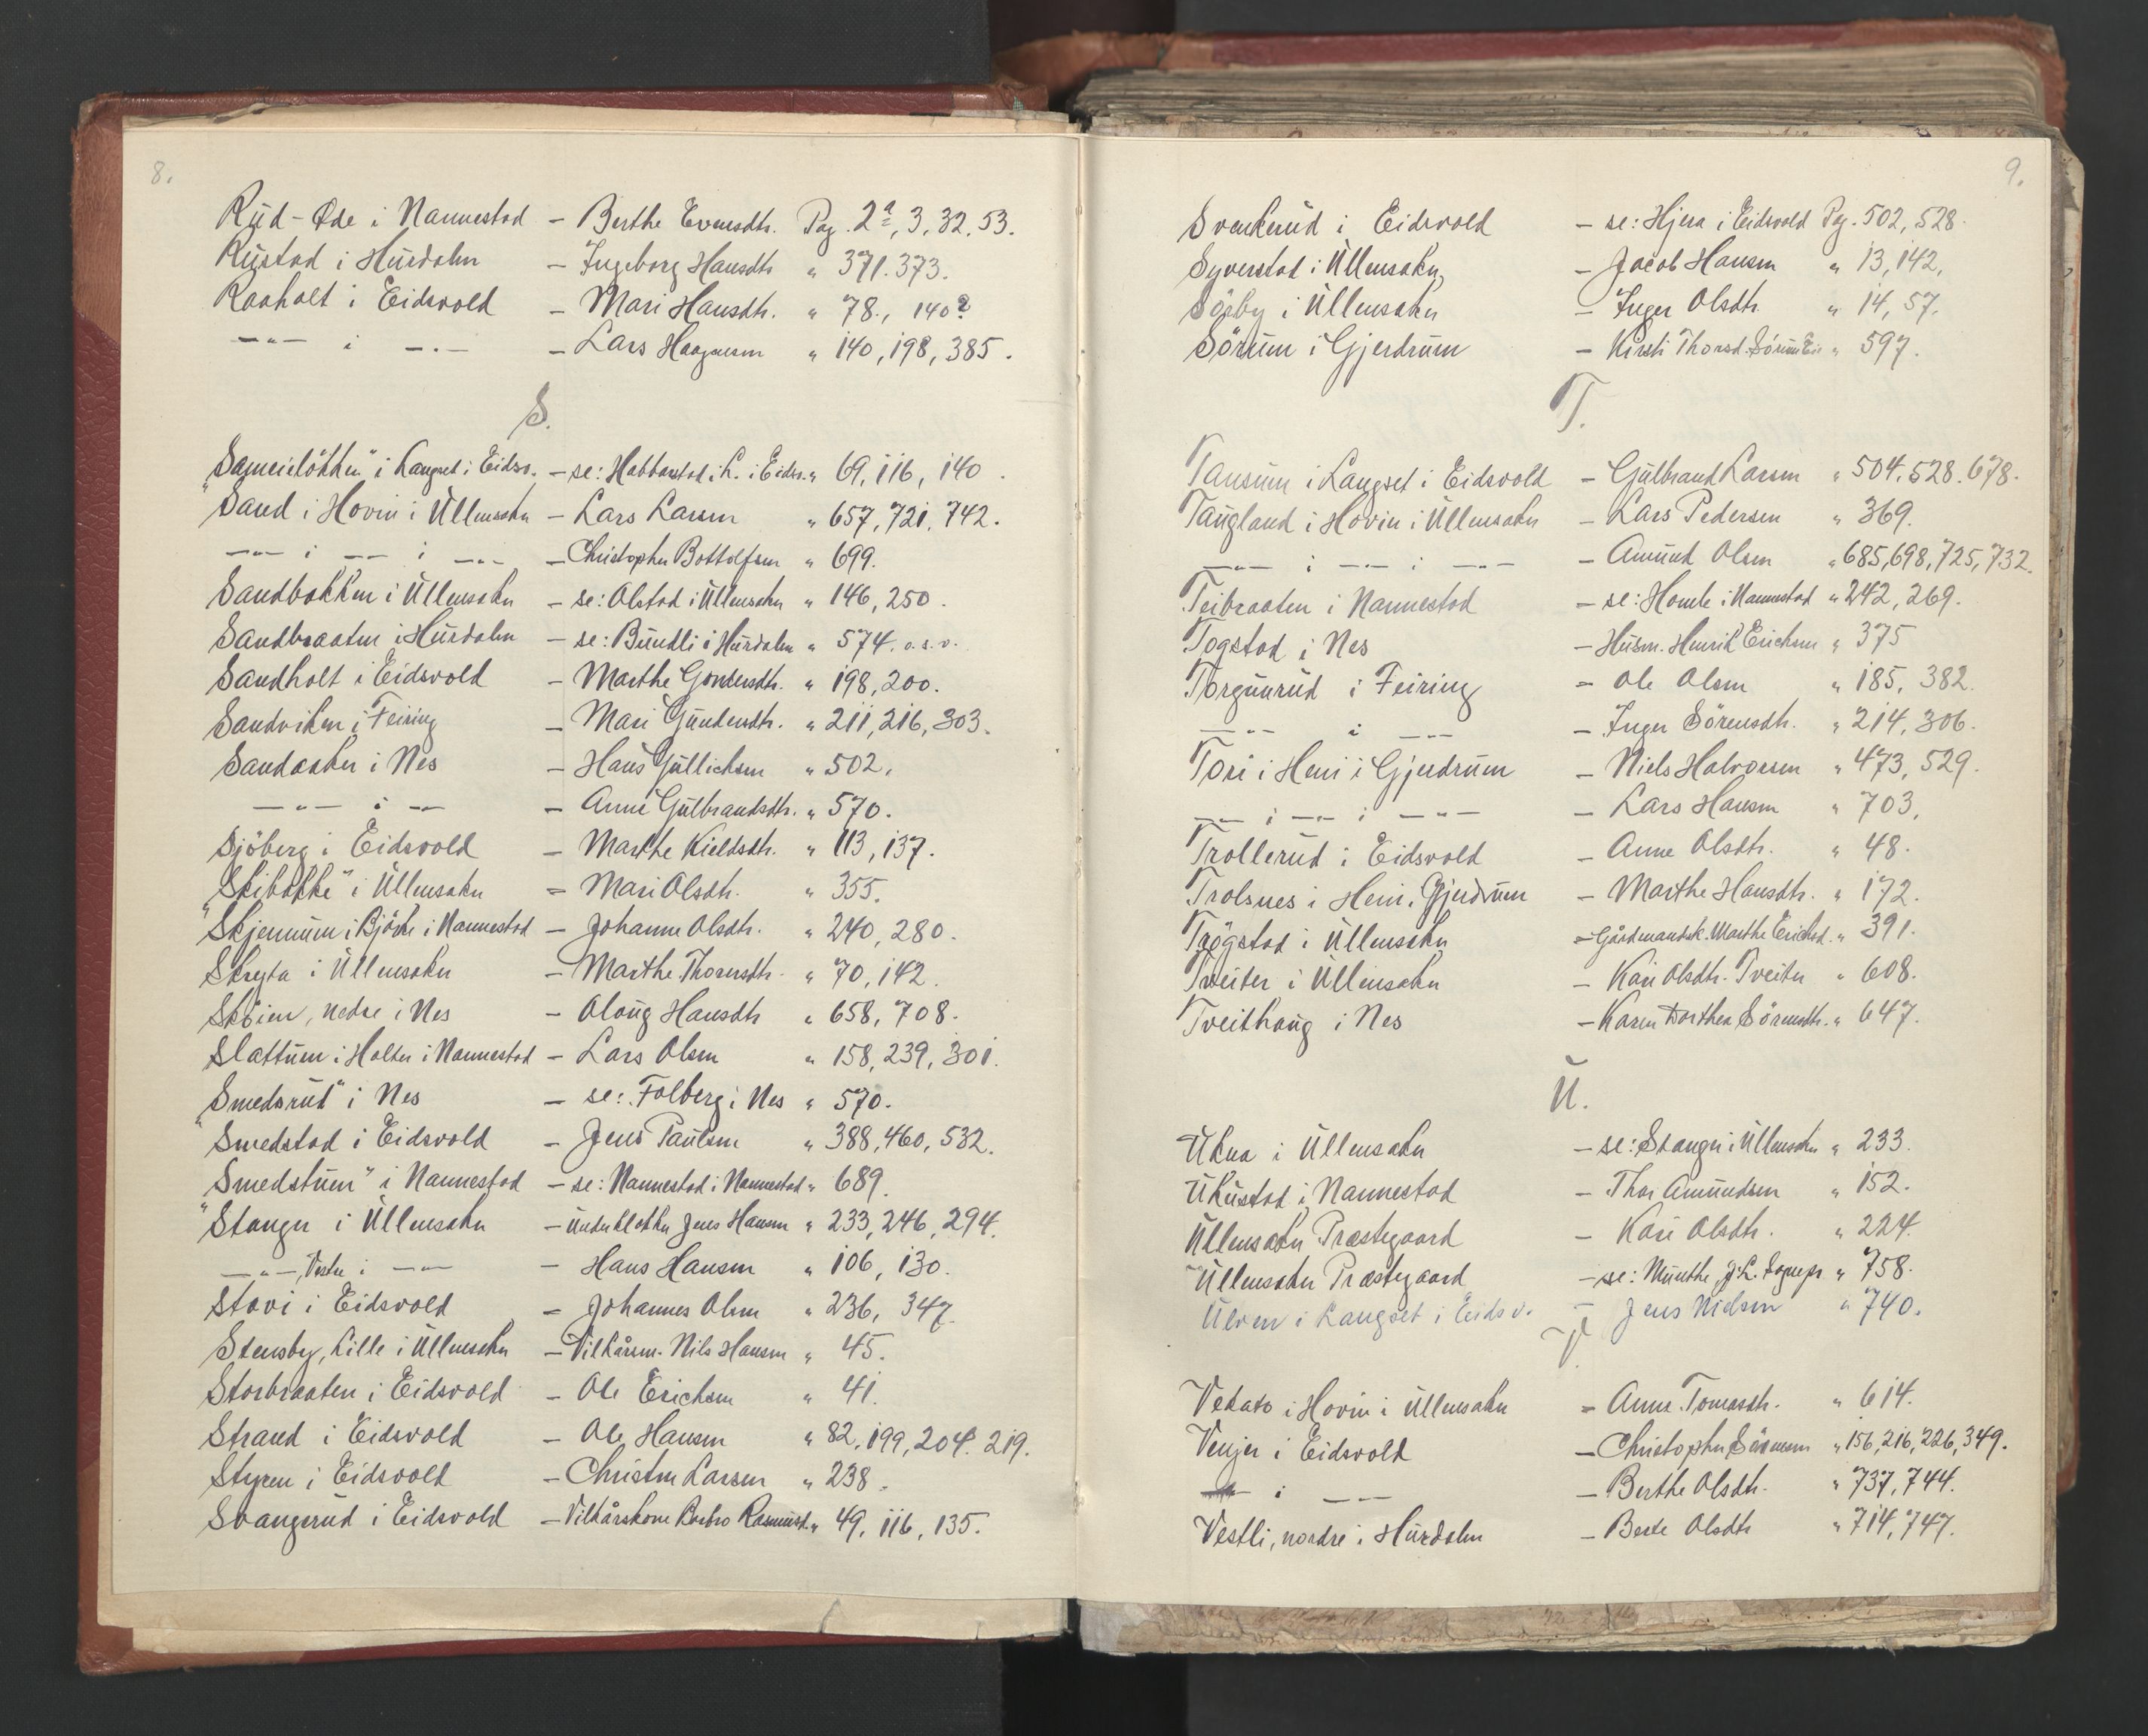 8.
Rud-Øde i Nannestad - Berthe Evensdtr. Pag. 2ª, 3, 32, 53.
Rustad i Hurdalen - Ingeborg Hansdtr. " 371. 373.
Raaholt i Eidsvold - Mari Hansdtr. " 78., 140?
-"- i -"- - Lars Haagensen " 140, 198, 385.
S.
"Sameielökken" i Langset i Eidsv. - se: Habberstad i L. i Eidsv. " 69, 116, 140
Sand i Hovin i Ullensaker - Lars Larsen " 657, 721, 742.
-"- i -"- i -"- - Christopher Bottolfsen " 699.
Sandbakken i Ullensaker - se: Olstad i Ullensaker " 146, 250.
Sandbraaten i Hurdalen - se: Bundli i Hurdalen " 574. o.s.v.
Sandholt i Eidsvold - Marthe Gundersdtr. " 198, 200.
Sandviken i Feiring - Mari Gundersdtr. " 211, 216, 303.
Sandaaker i Nes - Hans Gullichsen " 502.
-"- i -"- - Anne Gulbrandsdtr. " 570.
Sjöberg i Eidsvold - Marthe Kieldsdtr. " 113, 137.
"Skibakke" i Ullensaker - Mari Olsdtr. " 355.
Skjennum i Bjerke i Nannestad - Johanne Olsdtr. " 240, 280.
Skryta i Ullensaker - Marthe Thoresdtr. " 70, 142.
Sköien, nedre i Nes - Oloug Hansdtr " 658, 708.
Slattum i Holter i Nannestad - Lars Olsen " 158, 239, 301.
"Smedsrud" i Nes - se: Folberg i Nes " 570.
Smedstad i Eidsvold - Jens Paulsen " 388, 460, 532.
"Smedstuen" i Nannestad - se: Nannestad i Nannestad " 689.
Stanger i Ullensaker - Underklokker Jens Hansen " 233, 246, 294.
-"-, Vestre i -"- - Hans Hansen " 106, 130.
Stavi i Eidsvold - Johannes Olsen " 236, 347.
Stensby, Lille i Ullensaker - Vilkårsm. Nils Hansen " 45.
Storbraaten i Eidsvold - Ole Erichsen " 41.
Strand i Eidsvold - Ole Hansen " 82, 199, 204. 219.
Styren i Eidsvold - Christen Larsen " 238.
Svangerud i Eidsvold - Vilkårskone Barbro Rasmusd. " 49, 116, 135.
9.
Svenkerud i Eidsvold - se: Hjera i Eidsvold Pag. 502, 528.
Syverstad i Ullensaker, - Jacob Hansen " 13, 142.
Sörby i Ullensaker - Inger Olsdtr. " 14, 57.
Sörum i Gjerdrum - Kirsti Thorsd. Sörum Eie " 597.
T.
Tansum i Langset i Eidsvold - Gulbrand Larsen " 504. 528. 678.
Taugland i Hovin i Ullensaker - Lars Pedersen " 369.
-"- i -"- i -"- - Amund Olsen " 685, 698, 725, 732.
Teibraaten i Nannestad - se: Homle i Nannestad " 242, 269.
Togstad i Nes - Husm. Henrik Erichsen " 375
Torgunrud i Feiring - Ole Olsen " 185, 382.
-"- i -"- - Inger Sörensdtr. " 214, 306.
Tori i Heni i Gjerdrum - Niels Halvorsen " 473, 529.
-"- i -"- i -"- - Lars Hansen " 703.
Trollerud i Eidsvold - Anne Olsdtr. " 48.
Trolsnes i Heni i Gjerdrum - Marthe Hansdtr. " 172.
Trögstad i Ullensaker - Gårdmandsk. Marthe Erichsd. " 391.
Tveiter i Ullensaker - Kari Olsdtr. Tveiter " 608.
Tveithaug i Nes - Karen Dorthea Sörensdtr. " 647.
U.
Ukna i Ullensaker - se: Stanger i Ullensaker " 233.
Ukustad i Nannestad - Thor Amundsen " 152.
Ullensaker Præstegaard - Kari Olsdtr. " 224.
Ullensaker Præstegaard - se: Munthe, J. L. Sognepr " 758.
Ulven i Langset i Eidsv. - Jens Nielsen " 740.
V.
Vekato i Hovin i Ullensaker - Anne Tomasdtr. " 614.
Venjer i Eidsvold - Christopher Sörensen " 156, 216, 226, 349.
-"- i -"- - Berthe Olsdtr. " 737, 744.
Vestli, nordre i Hurdalen - Berte Olsdtr " 714, 747.